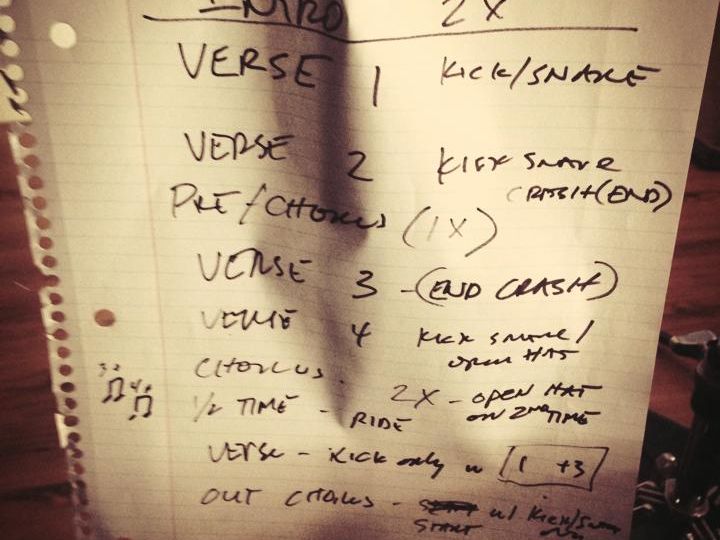 INTRO 2X
VERSE 1 KICK/SNARE
VERSE 2 KICK SNARE
CRASH (END)
PRE/CHORUS (1X)
VERSE 3 - (END CRASH)
VERSE 4 KICK SNARE/
OPEN HAT
CHORUS
1/2 TIME - RIDE 2X - OPEN HAT
ON 2ND TIME
VERSE - KICK only w 1 +3
OUT CHORUS - START w/ KICK/SNARE